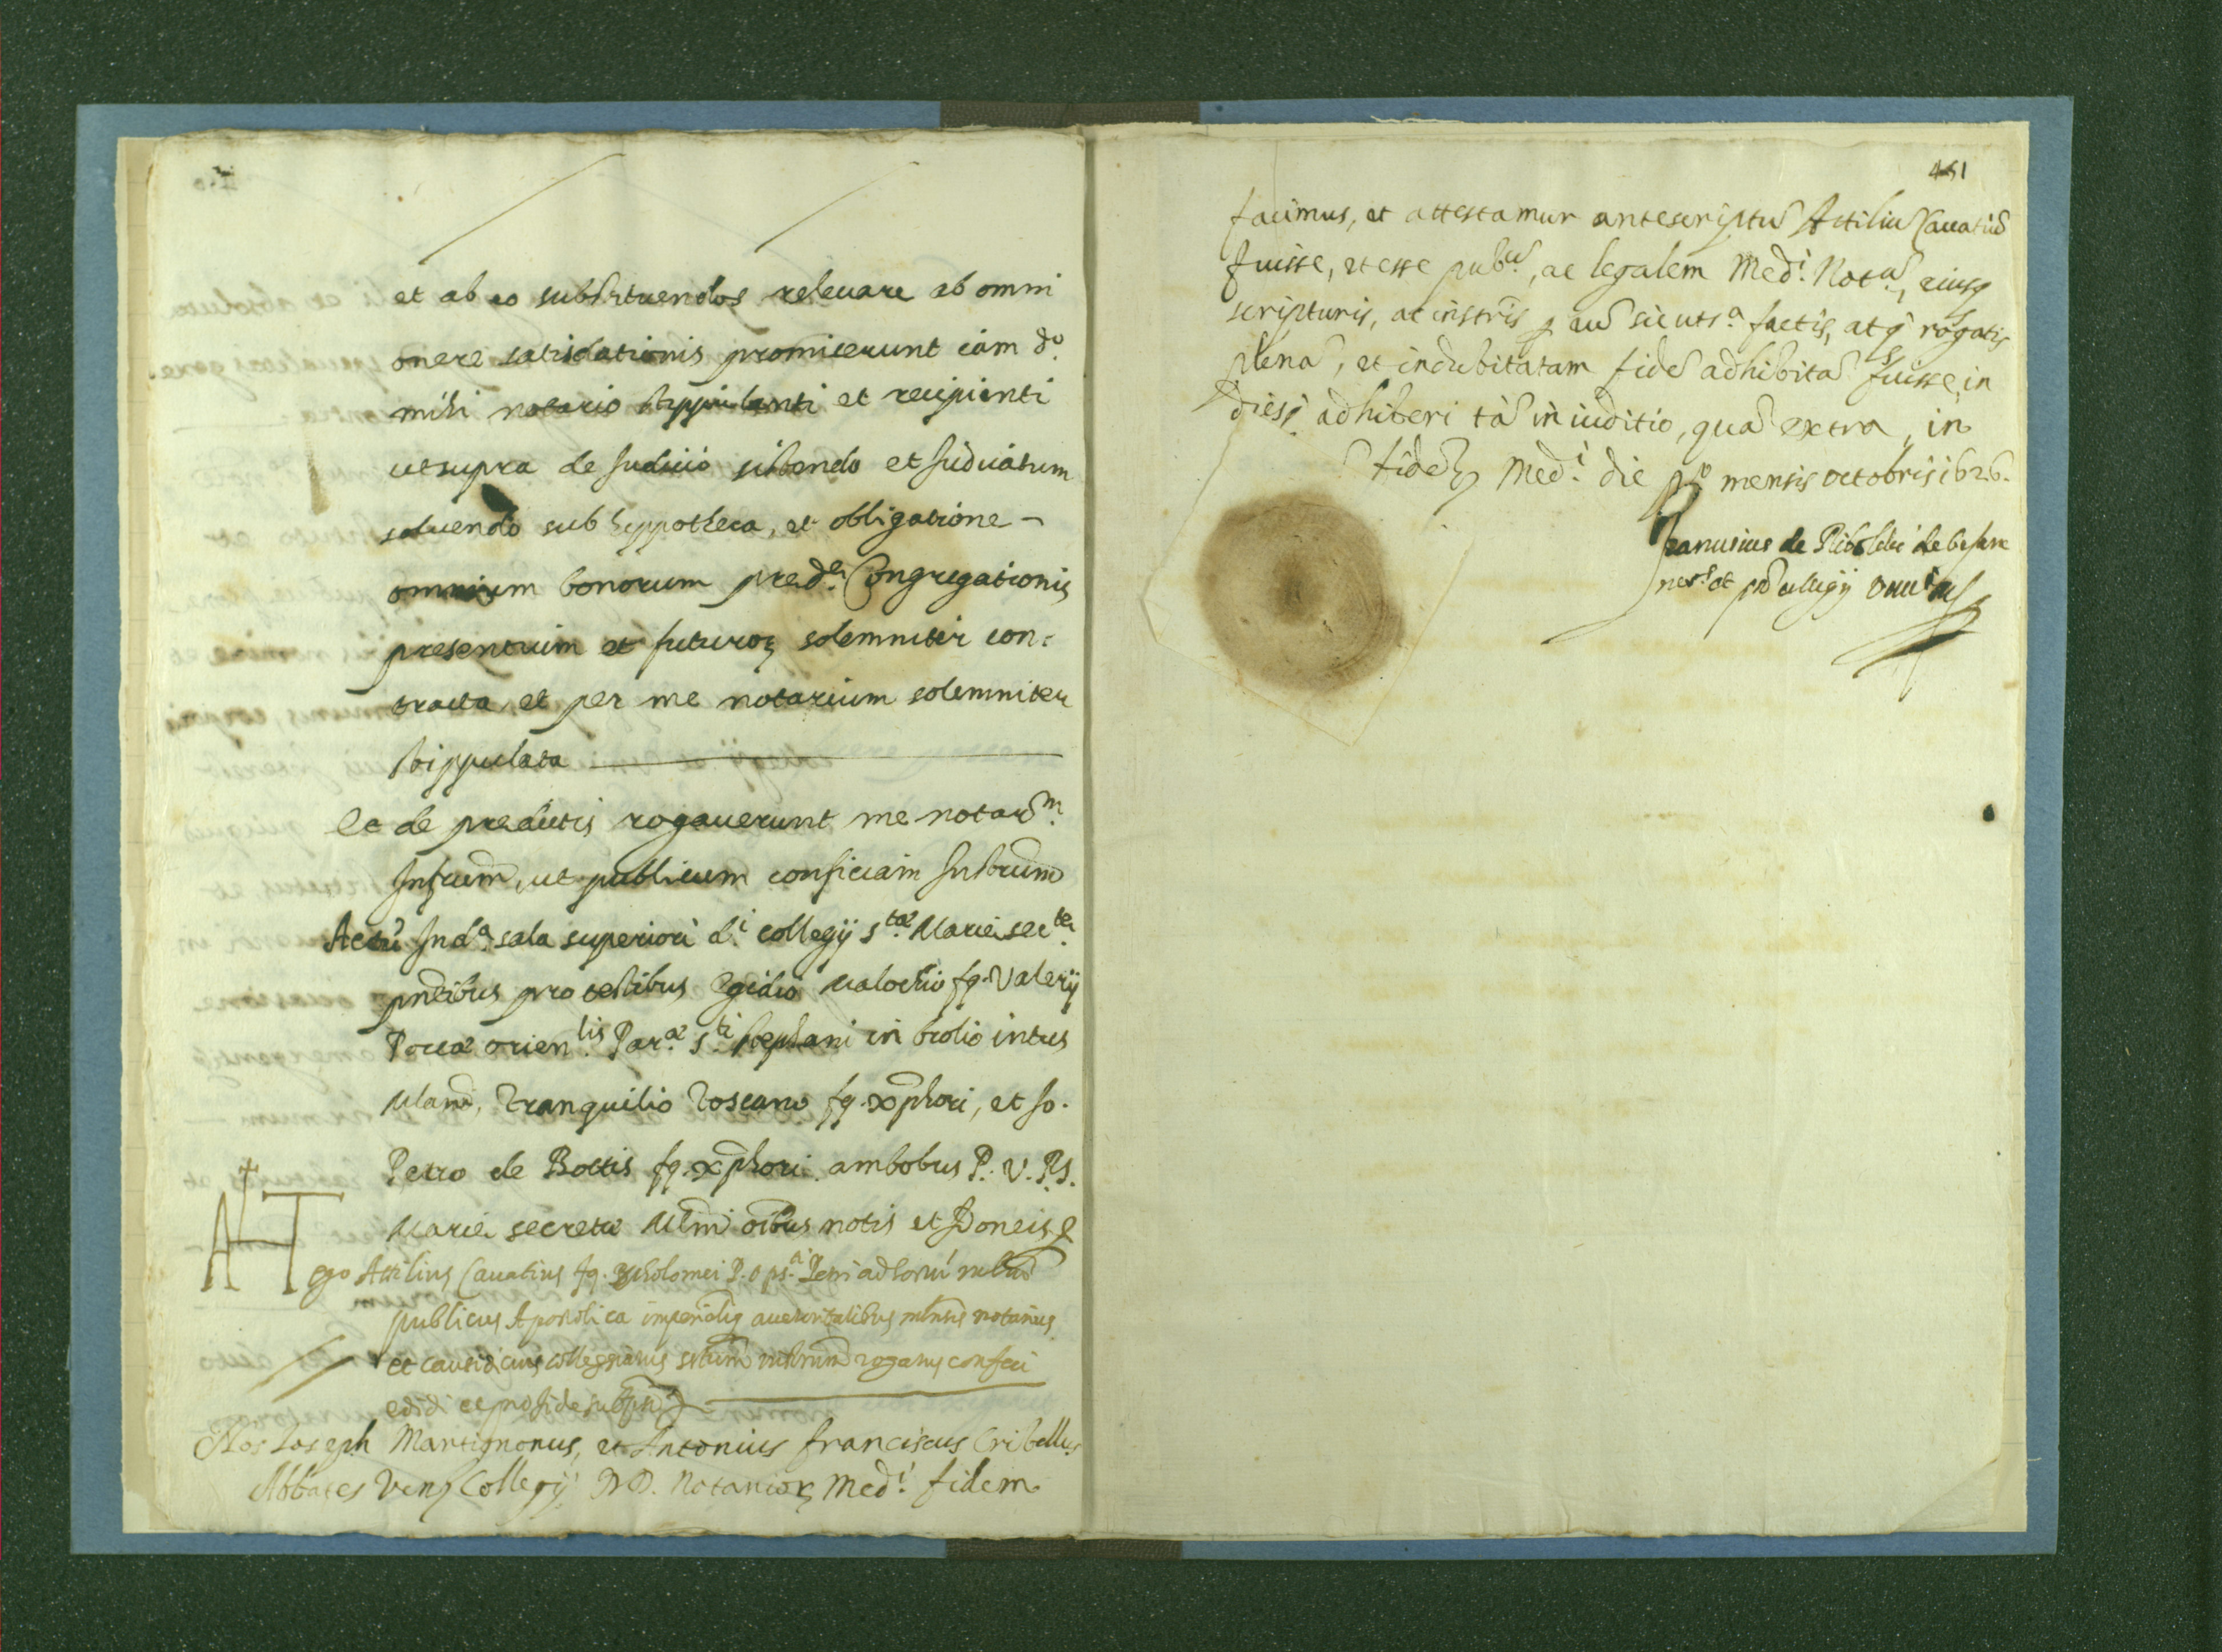 et ab eo substituendos releuare ab omni
onere satisdationis promiserunt eiam d.º
mihi notario stippulanti et recipienti
ut supra de Judicio sistendo et Judicatum
soluendo sub hyppotheca, et obligatione -
omnium bonorum pred.ᵉ Congregationis
presentium et futuroꝝ solemniter con:
tracta et per me notarium solemniter
stippulata
Et de predictis rogauerunt me notar.ᵐ
Infrum, ut publicum conficiam Instrum
Actũ In d.ᵃ sala superiori d.ⁱ collegij S.ᵗᵃᵉ Marie sec.ᵗᵉ
pntibus pro testibus Egidio Malochio fq. Valerij
Portæ orien.ˡⁱˢ Par.ᵃᵉ S.ᵗⁱ stephani in brolio intus
Mlani, Tranquilio Toscano fq. Xpphori, et Jo.
Petro de Bottis fq. Xpphori ambobus P. V. P. S.
Marie secrete Mlni oibus notis et Idoneis &
A T
ego Attilius Cauatius fq. Bartholomei P. O. ps.ᵃ Petri ad hortũ mlni
publicus Apostolica imperialiq auctoritatibus mlnsis notarius
et causidicus collegiatus sctum instrum rogatus confeci
edidi et pro fide subscpsi
Nos Ioseph Martignonus, et Antonius franciscus Cribellus
Abbates Ven. Collegij DD. Notarioꝝ Med.ⁱ fidem
451
facimus, et attestamur antescriptũ Attiliũ Cauatiũ
fuisse, et esse pub.ᵘ, ac legalem Med.ⁱ Not.ᵘ, eiusq
scripturis, ac instris p eũ sicut s.ᵃ factis, atq rogatis
plenã, et indubitatam fidẽ adhibitã fuisse, in
diesq. adhiberi tã in iuditio, quã extra, in
fidẽ Med.ⁱ die p.º mensis octobris 1626.